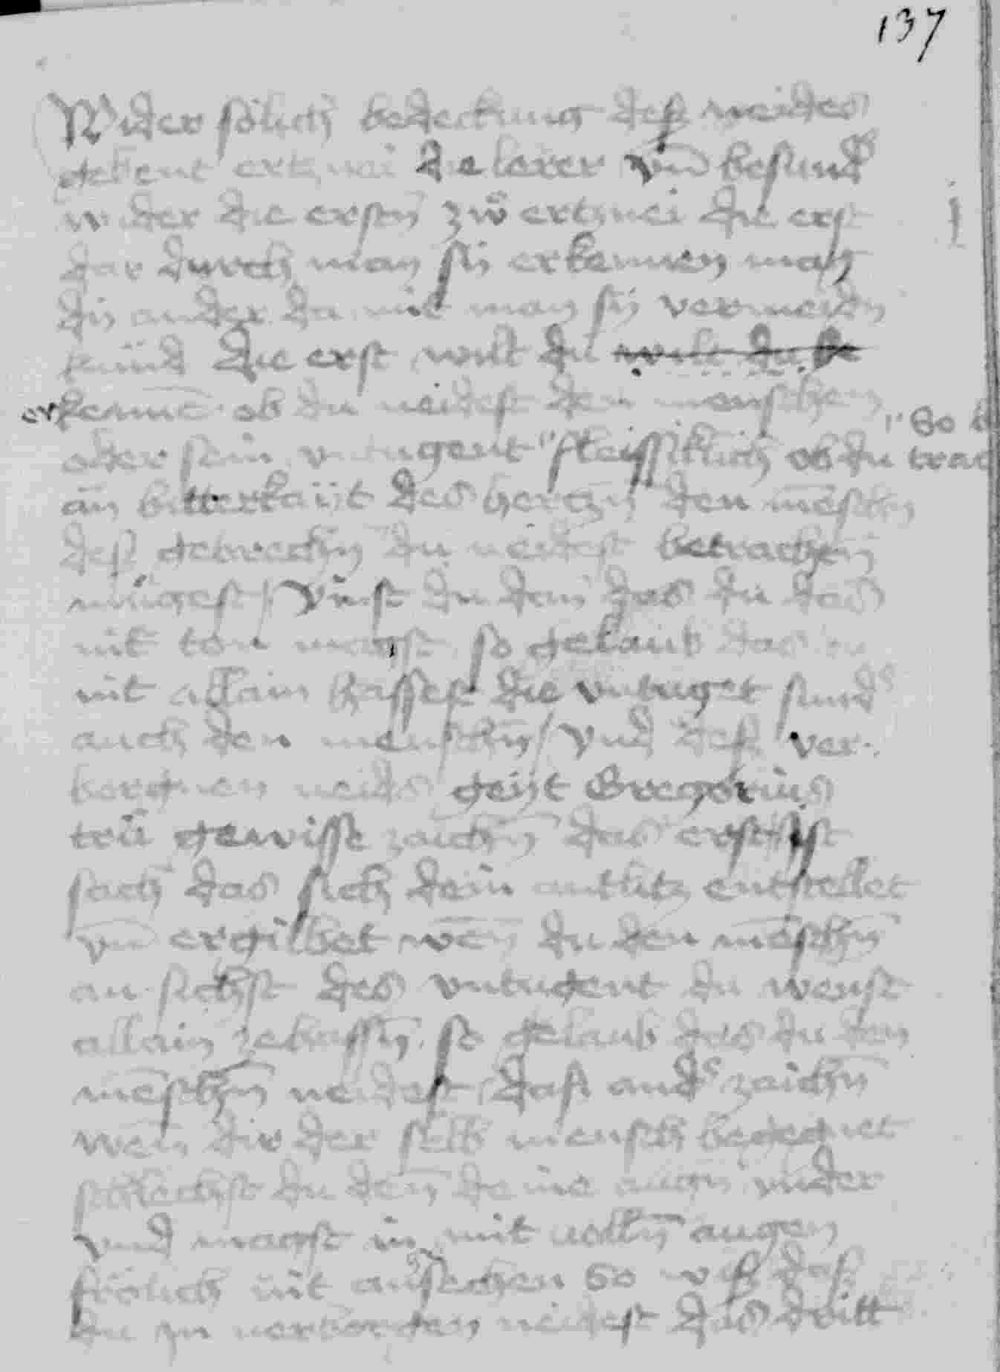 137
Wider sölich bedeckung deß neides
gebent ertznei die lerer vnd besund
wider die ersten zwo ertznei die erst
dar durch man sij erkennen mag
dij ander da mit man sij vermeiden
künd Die erst wilt du wilt du be
erkenne ob du neidest den menschen
oder sein vntugent "fleissiklich ob du
"So trac
ān bitterkaijt des hertzn den mēschn
deß gebrechn du neidest betrachen
mügest / Vinst du dan das du das
nit ton magst so gelaub das du
nit allain hassest die vntuget sund
auch den menschn / Vnd deß ver
borgnen neids geijt Gregorius
trü gewisse zaichn das erst ist
sach das sich dein antlitz entstellet
vn ergilbet wen du den mēschn
an sichst des vntugent du wenst
allain zehassn so gelaub das du den
mēschn neidest Daß and zaichn
wenn dir der selb mensch begegnet
schlechst du den deine augn vnder
vnd magst in mit volln augen
frölich nit ansechen So wiß daß
du jn verborgen neidest Das dritt